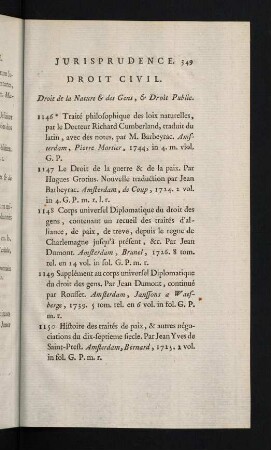 JURISPRUDENCE. 349
DROIT CIVIL.
Droit de la Nature & des Gens, & Droit Public.
1146* Traité philosophique des loix naturelles,
par le Docteur Richard Cumberland, traduit du
latin, avec des notes, par M. Barbeyrac. Amsterdam,
Pierre Mortier, 1744, in 4. m. viol.
G. P.
1147 Le Droit de la guerre & de la paix. Par
Hugues Grotius. Nouvelle traduction par Jean
Barbeyrac. Amsterdam, de Coup, 1724. 2 vol.
in 4. G. P. m. r. l. r.
1148 Corps universel Diplomatique du droit des
gens, contenant un recueil des traités d'alliance,
de paix, de treve, depuis le regne de
Charlemagne jusqu'à présent, &c. Par Jean
Dumont. Amsterdam, Brunel, 1726. 8 tom.
rel. en 14 vol. in fol. G. P. m. r.
1149 Supplément au corps universel Diplomatique
du droit des gens. Par Jean Dumont, continué
par Rousset. Amsterdam, Janssons a Waesberge,
1739. 5 tom. rel. en 6 vol. in fol. G. P.
m. r.
1150 Histoire des traités de paix, & autres négociations
du dix-septieme siecle. Par Jean Yves de
Saint-Prest. Amsterdam, Bernard, 1725. 2 vol.
in fol. G. P. m. r.